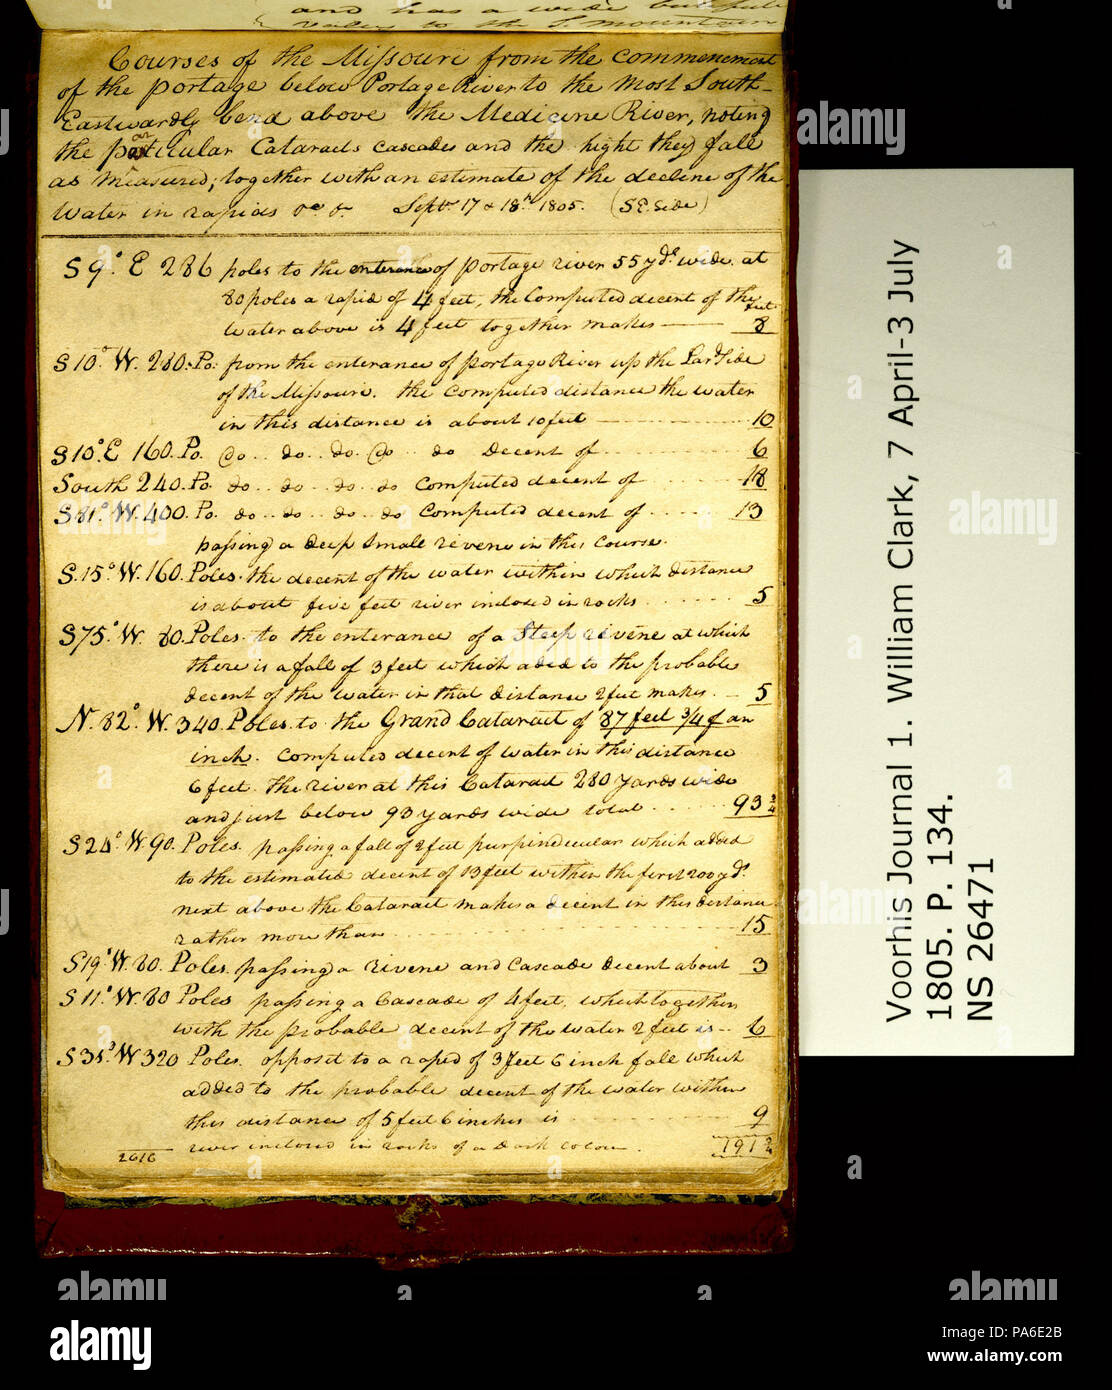 and has a wide
valey to the S. mountain
Courses of the Missouri from the commencement
of the portage below Portage River to the most South-
Eastwardly bend above the Medicine River, noting
the particular Cataracts cascades and the hight they fall
as measured; together with an estimate of the decline of the
Water in rapids &c &c. Septr. 17 & 18th 1805. (S E. Side)
S 9° E 286 poles to the enterance of portage river 55 yds. wide. at
80 poles a rapid of 4 feet, the Computed decent of the
feet
water above is 4 feet together makes 8
S 10° W. 280. Po: from the enterance of portage River up the Lard Side
of the Missouri. the computed distance the water
in this distance is about 10 feet 10
S 10° E 160. Po. do.. do.. do. do .. do Decent of 6
South 240. Po do .. do .. do .. do computed decent of 18
S 81° W. 400. Po. do .. do .. do .. do Computed decent of 13
passing a deep small rivene in this course.
S. 15° W. 160. Poles. the decent of the water within which distance
is about five feet river inclosed in rocks 5
S 75° W. 80. Poles to the enterance of a Steep rivene at which
there is a fall of 3 feet which aded to the probable
decent of the water in that distance 2 feet makes. 5
N. 82° W. 340. Poles. to the Grand Cataract of 87 feet 3/4 of an
inch. computed decent of water in this distance
6 feet. the river at this Cataract 280 yards wide
and just below 93 yards wide total 93 3/4
S 24° W 90. Poles. passing a fall of 2 feet purpindicular which added
to the estimated decent of 13 feet within the first 200 yds.
next above the Cataract makes a decent in this distance
rather more than 15
S 19° W. 80. Poles. passing a rivene and cascade decent about 3
S 11° W. 80 Poles passing a Cascade of 4 feet, which together
with the probable decent of the water 2 feet is 6
S 35° W 320 Poles. opposit to a raped of 3 feet 6 inch fall which
added to the probable decent of the water within
this distance of 5 feet 6 inches is 9
2616 river inclosed in rocks of a dark colour. 191 3/4
Voorhis Journal 1. William Clark, 7 April-3 July
1805. P. 134.
NS 26471
alamy
alamy
Image ID: PA6E2B
www.alamy.com